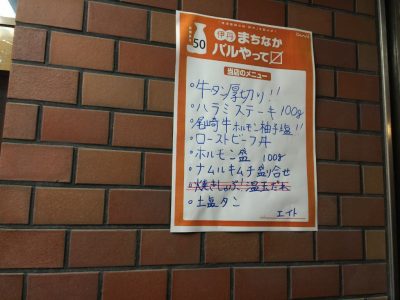 50
伊丹 まちなか
バルやって
当店のメニュー
・牛タン厚切り!!
・ハラミステーキ 100g
・尾崎牛ホルモン柚子塩!!
・ローストビーフ丼
・ホルモン盛 100g
・ナムルキムチ盛り合せ
・焼きしゃぶ!温玉だれ
・上塩タン
エイト